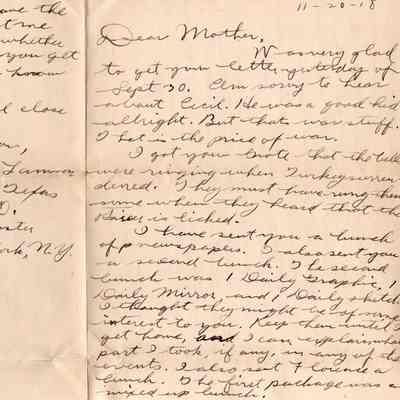 ave the
t me
whether
you get
know
l close
Lamar
Texas
ork, N.Y.
11-20-18
Dear Mother,
Was very glad
to get your letter yesterday of
Sept 30. Am sorry to hear
about Cecil. He was a good kid
allright. But thats war stuff.
That is the price of war.
I got your note that the bells
were ringing when Turkey surren
dered. They must have rung them
some when they heard that the
is licked.
I have sent you a bunch
of newspapers. I also sent you
a second bunch. The second
bunch was 1 Daily Graphic, 1
Daily Mirror, and 1 Daily Sketch
I thought they might be of some
interest to you. Keep them until I
get home, and I can explain what
part I took, if any, in any of the
events. I also sent Florence a
bunch. The first package was a
mixed up bunch.